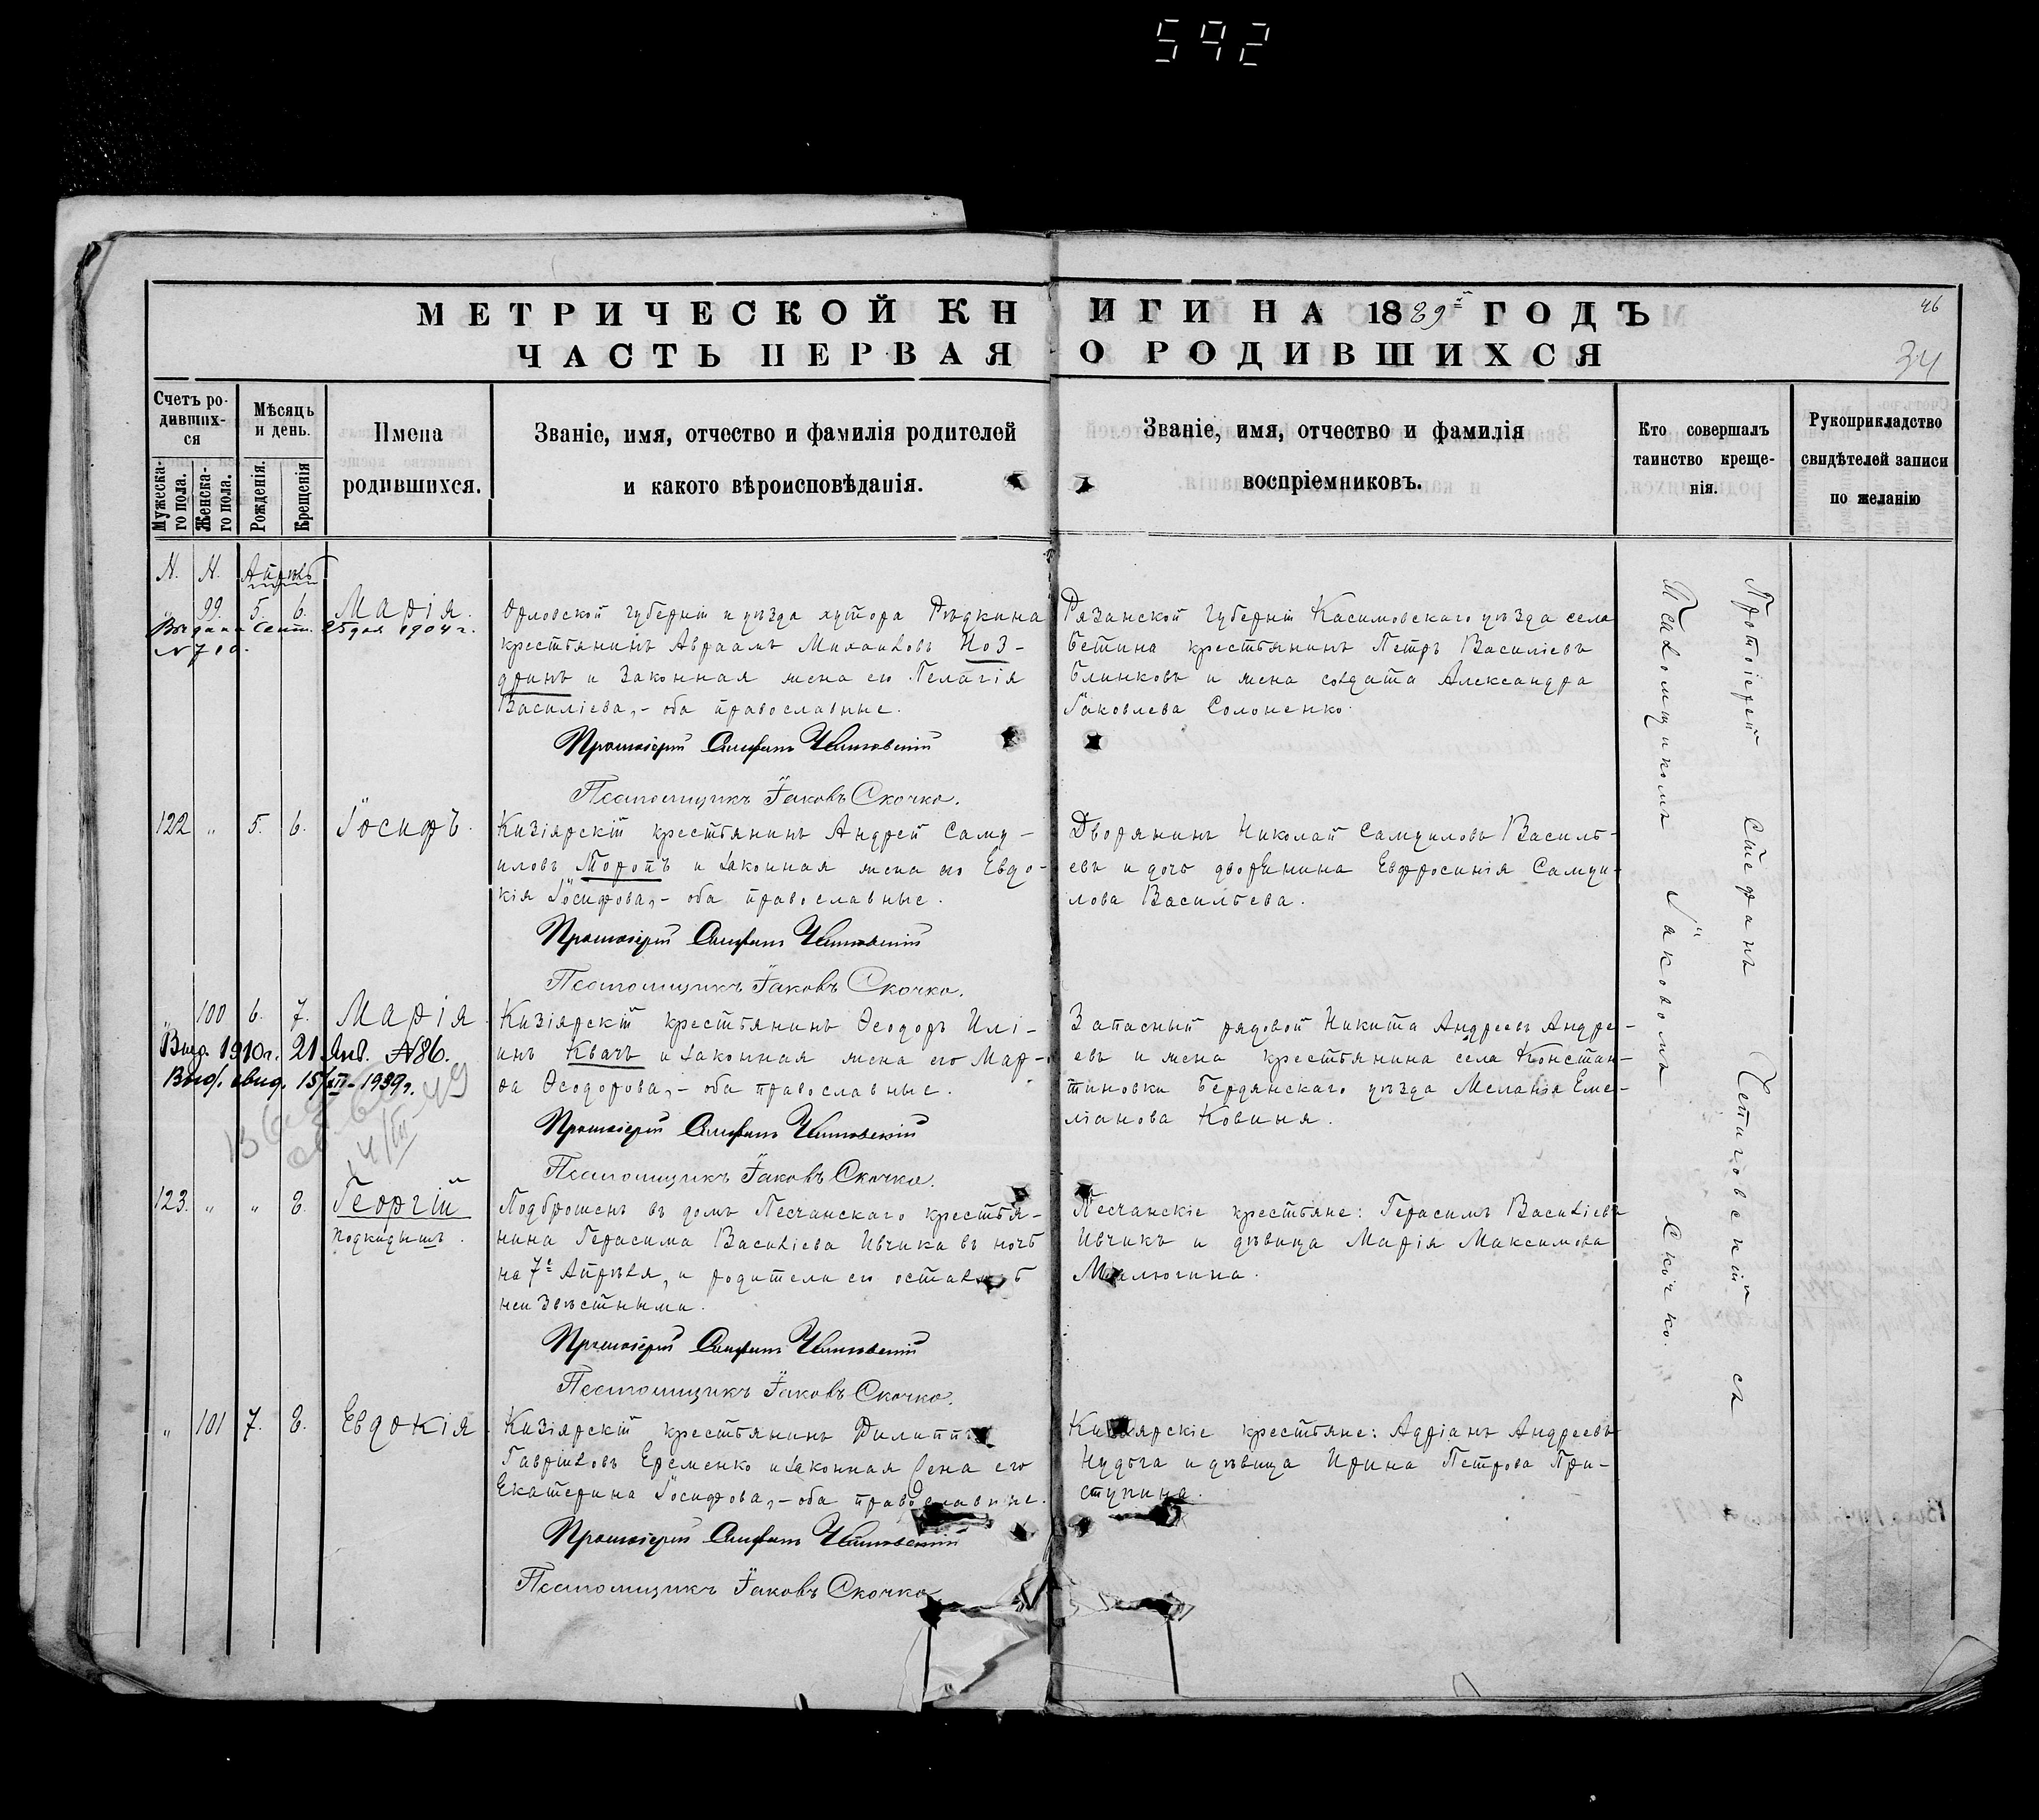 592
МЕТРИЧЕСКОЙ КНИГИ НА 1889й ГОДЪ
46
ЧАСТЬ ПЕРВАЯ О РОДИВШИХСЯ
34
Счетъ родивших-
ся
Мужеска-
го пола.
Женска-
го пола.
Мѣсяць
и день.
Рожденія.
Крещенія
Имена
родившихся.
Званіе, имя, отчество и фамилія родителей
и какого вѣроисповѣданія.
Званіе, имя, отчество и фамилія
воспріемниковъ.
Кто совершалъ
таинство креще-
нія.
Рукоприкладство
свидѣтелей записи
по желанію
Н. Н. Апрѣль
„ 99. 5. 6. Марія.
Выдана Сент. 25 дня 1904 г.
№ 710.
Орловской губерніи и уѣзда хутора Рѣдкина
крестьянинъ Авраамъ Михаиловъ Ноз-
дринъ и законная жена его Пелагія
Василіева,- оба православные.
Протоіерей Стефанъ Четиговскій
Псаломщикъ Іаковъ Скочко.
Рязанской губерніи Касимовскаго уѣзда села
Бетина крестьянинъ Петръ Василіевъ
Блинковъ и жена солдата Александра
Іаковлева Солоненко.
122 „ 5. 6. Іосифъ.
Кизіярскій крестьянинъ Андрей Саму-
иловъ Моропъ и законная жена его Евдо-
кія Іосифова,- оба православные.
Протоіерей Стефанъ Четиговскій
Псаломщикъ Іаковъ Скочко.
Дворянинъ Николай Самуиловъ Василь-
евъ и дочь дворянина Евфросинія Самуи-
лова Васильева.
„ 100 6. 7. Марія
Выд. 1910 г. 21 Янв. №86.
Выд. свид. 15/XII-1939 г.
Кизіярскій крестьянинъ Ѳеодоръ Илі-
инъ Квачъ и законная жена его Мар-
ѳа Ѳеодорова,- оба православные.
Протоіерей Стефанъ Четиговскій
Псаломщикъ Іаковъ Скочко.
Запасный рядовой Никита Андреевъ Андре-
евъ и жена крестьянина села Констан-
тиновки Бердянскаго уѣзда Меланія Еме-
ліанова Ковиня.
123. „ „ 8. Георгій
подкидышъ.
Подброшенъ въ домъ Песчанскаго крестья-
нина Герасима Василіева Ивчика въ ночь
на 7е Апрѣля, и родители его остались
неизвѣстными.
Протоіерей Стефанъ Четиговскій
Псаломщикъ Іаковъ Скочко.
Песчанскіе крестьяне: Герасимъ Василіевъ
Ивчикъ и дѣвица Марія Максимова
Малюгина.
„ 101 7. 8. Евдокія
Кизіярскій крестьянинъ Филиппъ
Гавріиловъ Еременко и законная жена его
Екатерина Іосифова,- оба православные.
Протоіерей Стефанъ Четиговскій
Псаломщикъ Іаковъ Скочко.
Кизіярскіе крестьяне: Адріанъ Андреевъ
Нудьга и дѣвица Ирина Петрова При-
ступина.
Протоіерей Стефанъ Четиговскій съ
Псаломщикомъ Іаковомъ Скочко.